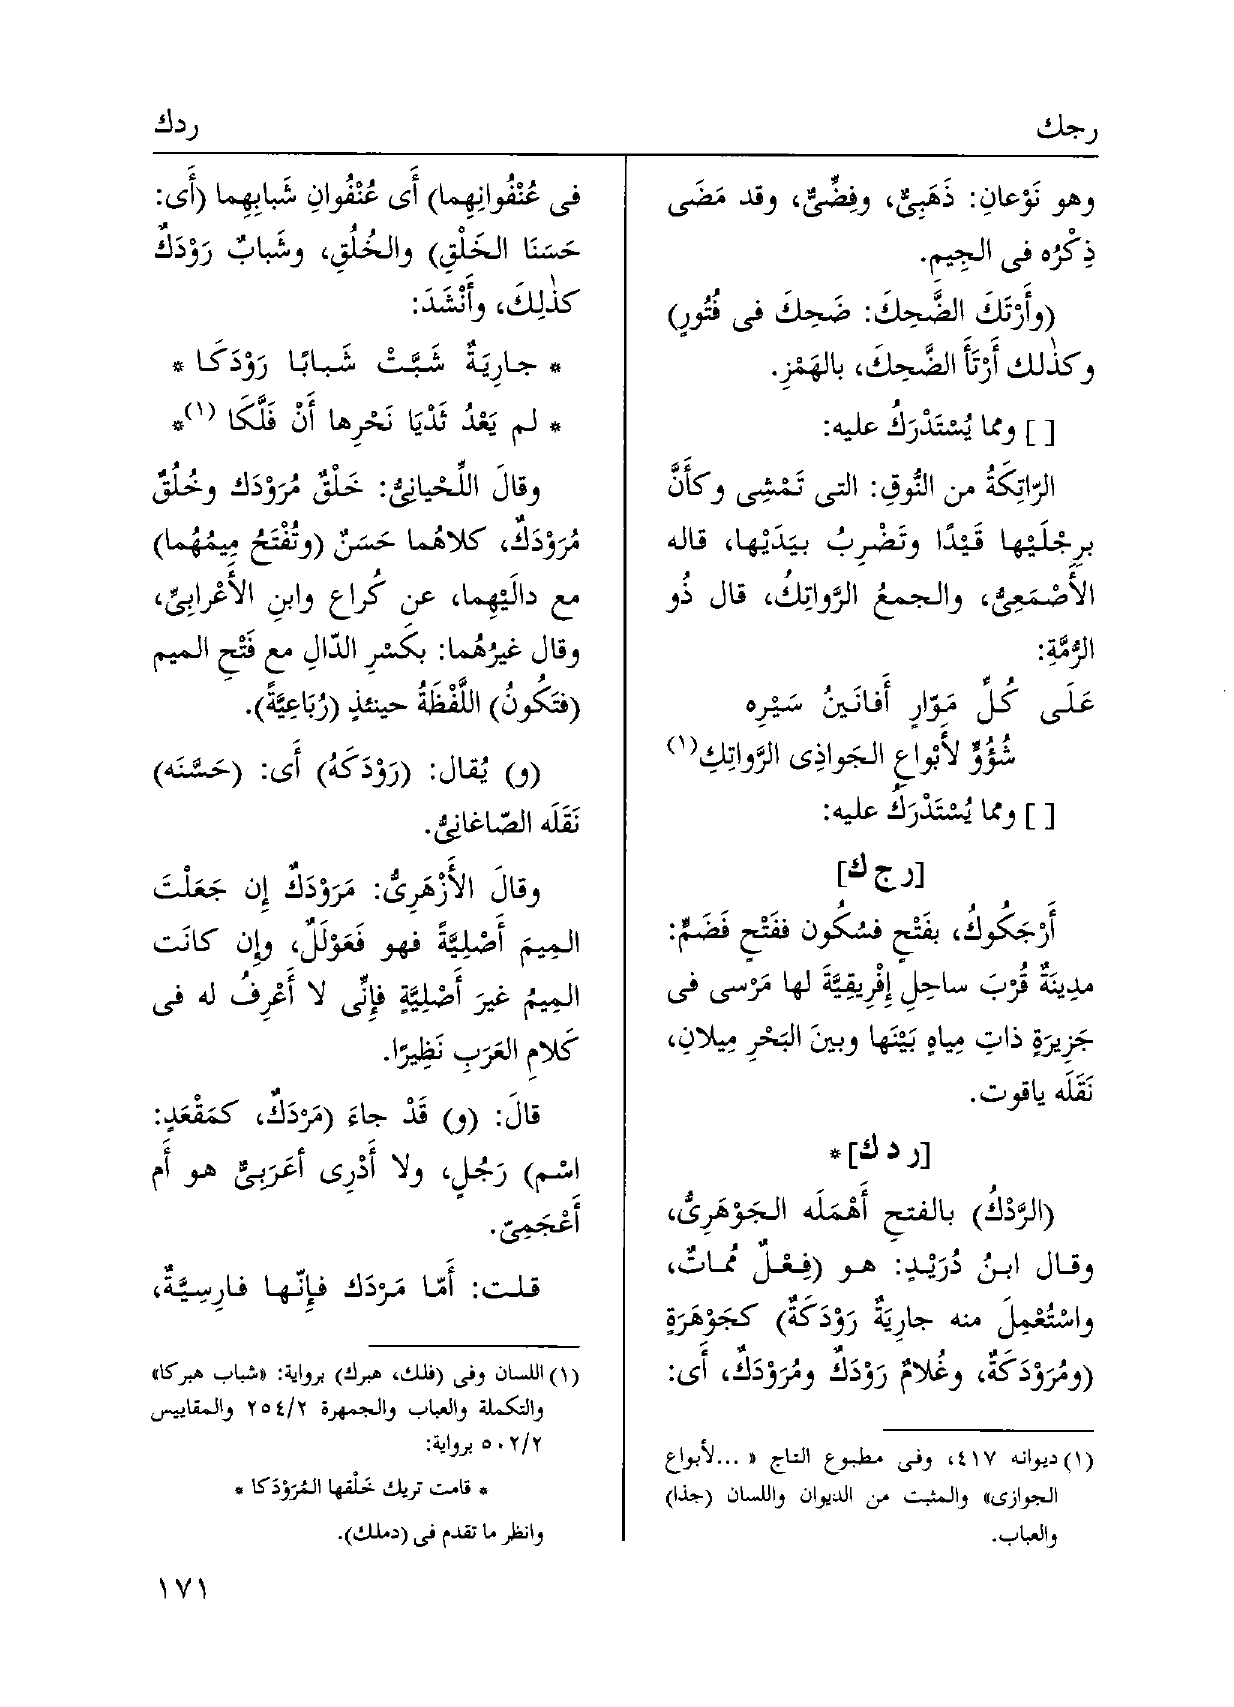 رجك
ردك
وهو نَوْعانِ: ذَهَبِىٌّ، وفِضِّىٌّ، وقد مَضَى
ذِكْرُه فى الجِيمِ.
(وأَرْتَكَ الضَّحِكَ: ضَحِكَ فى فُتُورٍ)
وكذٰلك أَرْتَأَ الضَّحِكَ، بالهَمْزِ.
[ ] ومما يُسْتَدْرَكُ عليه:
الرّاتِكَةُ من النُّوقِ: التى تَمْشِى وكَأَنَّ
بِرِجْلَيْها قَيْدًا وتَضْرِبُ بيَدَيْها، قاله
الأَصْمَعِىُّ، والجمعُ الرَّواتِكُ، قال ذُو
الرُّمَّةِ:
عَلَى كُلِّ مَوّارٍ أَفانَينُ سَيْرِه
شُؤُوٌّ لأَبْواعِ الجَواذِى الرَّواتِكِ(١)
[ ] ومما يُسْتَدْرَكُ عليه:
[ر ج ك]
أَرْجَكُوكُ، بفَتْحٍ فسُكُون ففَتْحٍ فَضَمٍّ:
مدِينَةٌ قُرْبَ ساحِلِ إِفْرِيقِيَّةَ لها مَرْسى فى
جَزِيرَةٍ ذاتِ مِياهٍ بَيْنَها وبينَ البَحْرِ مِيلانِ،
نَقَلَه ياقوت.
[ر د ك]*
(الرَّدْكُ) بالفتحِ أَهْمَلَه الجَوْهَرِىُّ،
وقال ابنُ دُرَيْدٍ: هو (فِعْلٌ مُماتٌ،
واسْتُعْمِلَ منه جارِيَةٌ رَوْدَكَةٌ) كجَوْهَرَةٍ
(ومُرَوْدَكَةٌ، وغُلامٌ رَوْدَكٌ ومُرَوْدَكٌ، أَى:
(١) ديوانه ٤١٧، وفى مطبوع التاج « ...لأبواع
الجوازى» والمثبت من الديوان واللسان (جذا)
والعباب.
فى عُنْفُوانِهِما) أَى عُنْفُوانِ شَبابِهِما (أَى:
حَسَنَا الخَلْقِ) والخُلُقِ، وشَبابٌ رَوْدَكٌ
كذٰلِكَ، وأَنْشَدَ:
* جارِيَةٌ شَبَّتْ شَبابًا رَوْدَكَا *
* لم يَعْدُ ثَدْيَا نَحْرِها أَنْ فَلَّكَا (١)*
وقالَ اللِّحْيانِىُّ: خَلْقٌ مُرَوْدَك وخُلُقٌ
مُرَوْدَكٌ، كلاهُما حَسَنٌ (وتُفْتَحُ مِيمُهُما)
مع دالَيْهِما، عن كُراع وابنِ الأَعْرابِىِّ،
وقال غيرُهُما: بكَسْرِ الدّالِ مع فَتْحِ الميم
(فتَكُونُ) اللَّفْظَةُ حينئذٍ (رُبَاعِيَّةً).
(و) يُقال: (رَوْدَكَهُ) أَى: (حَسَّنَه)
نَقَلَه الصّاغانىُّ.
وقالَ الأَزْهَرِىُّ: مَرَوْدَكٌ إِن جَعَلْتَ
المِيمَ أَصْلِيَّةً فهو فَعَوْلَلٌ، وإِن كانَت
المِيمُ غيرَ أَصْلِيَّةٍ فإِنِّى لا أَعْرِفُ له فى
كَلامِ العَرَبِ نَظِيرًا.
قالَ: (و) قَدْ جاءَ (مَرْدَكٌ، كمَقْعَدٍ:
اسْم) رَجُلٍ، ولا أَدْرِى أعَرَبِىٌّ هو أَم
أَعْجَمِىّ.
قلت: أَمّا مَرْدَك فإِنّها فارِسِيَّةٌ،
(١) اللسان وفى (فلك، هبرك) برواية: «شباب هبركا»
والتكملة والعباب والجمهرة ٢٥٤/٢ والمقاييس
٥٠٢/٢ برواية:
* قامت تريك خَلْقها المُرَوْدَكا *
وانظر ما تقدم فى (دملك).
١٧١